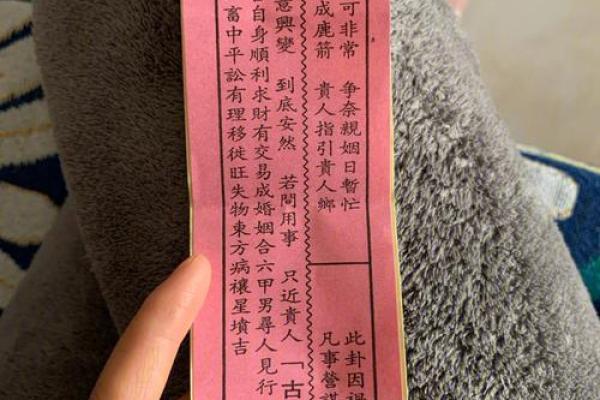 可非常 争奈親姻日暫忙
成鹿箭 貴人指引貴人鄉
此卦因
凡事營謀
意興變 到底安然 若問用事 只近貴人 「古
自身順利求財有交易成婚姻合六甲男尋人見行
畜中平訟有理移徙旺失物東方病禳星墳吉